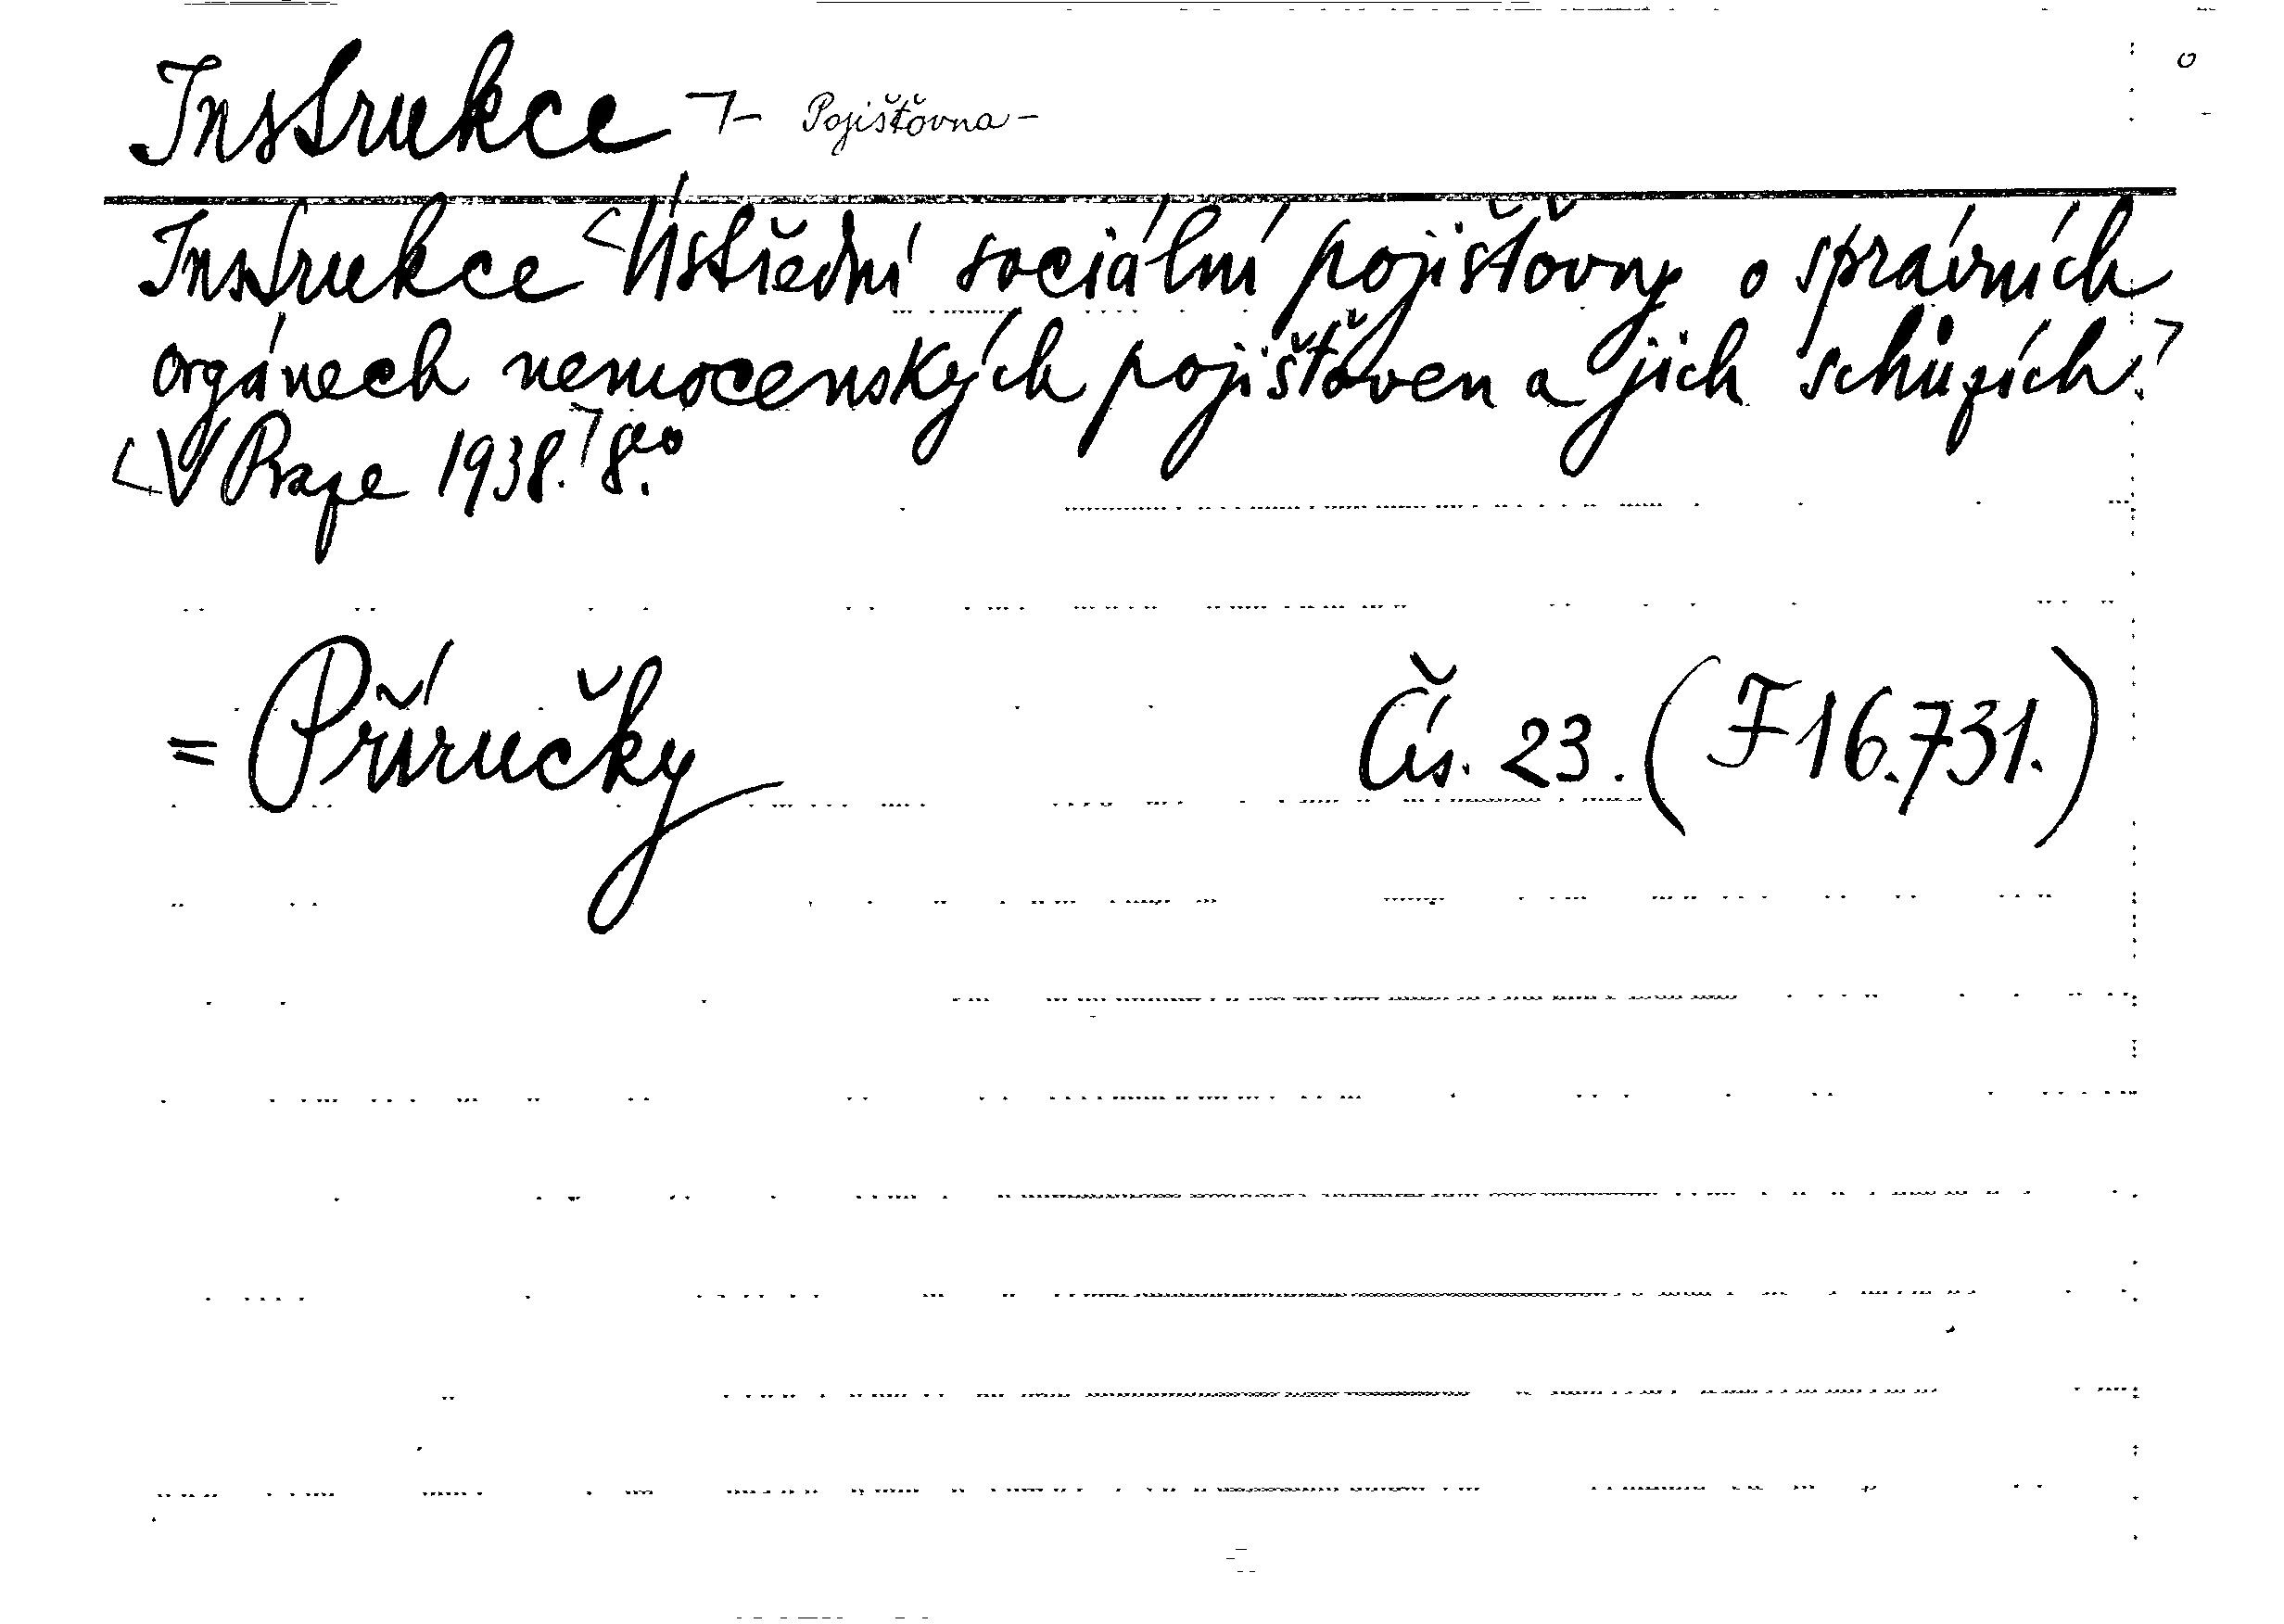 Instrukce ⌝ – Pojišťovna –
Instrukce <Ústřední sociální pojišťovny o správních
orgánech nemocenských pojišťoven a jich schůzích.⌝
<V Praze 1938.⌝ 8eo.
= Příručky Čís. 23. (F 16.731.)